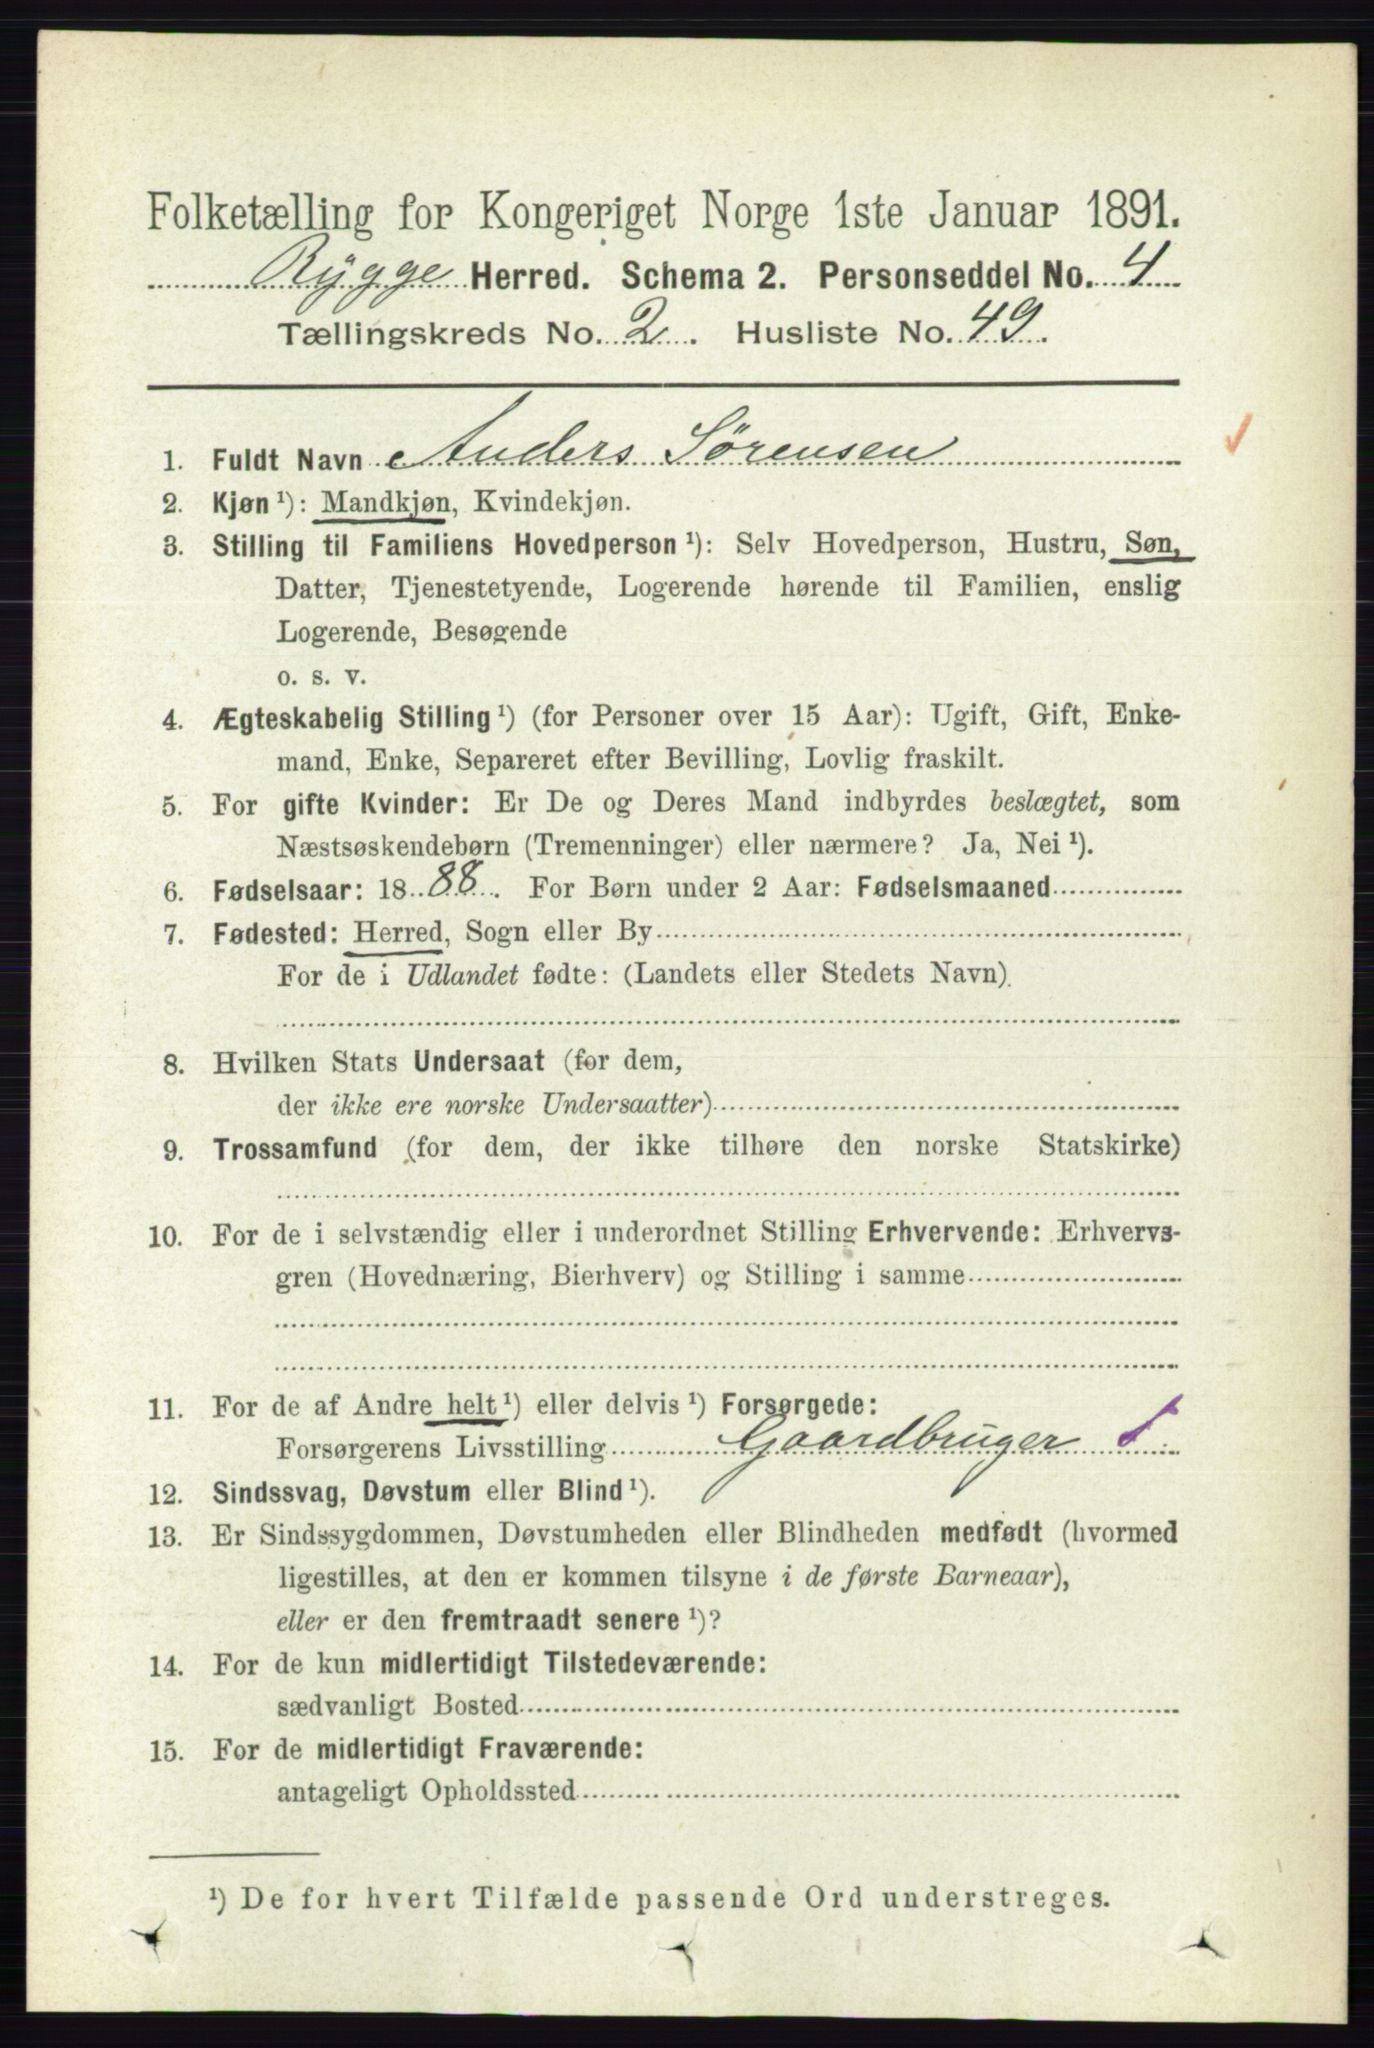 Folketælling for Kongeriget Norge 1ste Januar 1891.
Rygge Herred. Schema 2. Personseddel No. 4
Tællingskreds No. 2. Husliste No. 49.
1. Fuldt Navn Anders Sørensen
2. Kjøn ¹): Mandkjøn, Kvindekjøn.
3. Stilling til Familiens Hovedperson ¹): Selv Hovedperson, Hustru, Søn,
Datter, Tjenestetyende, Logerende hørende til Familien, enslig
Logerende, Besøgende
o. s. v.
4. Ægteskabelig Stilling ¹) (for Personer over 15 Aar): Ugift, Gift, Enke-
mand, Enke, Separeret efter Bevilling, Lovlig fraskilt.
5. For gifte Kvinder: Er De og Deres Mand indbyrdes beslægtet, som
Næstsøskendebørn (Tremenninger) eller nærmere? Ja, Nei ¹).
6. Fødselsaar: 1888. For Børn under 2 Aar: Fødselsmaaned
7. Fødested: Herred, Sogn eller By
For de i Udlandet fødte: (Landets eller Stedets Navn)
8. Hvilken Stats Undersaat (for dem,
der ikke ere norske Undersaatter)
9. Trossamfund (for dem, der ikke tilhøre den norske Statskirke)
10. For de i selvstændig eller i underordnet Stilling Erhvervende: Erhvervs-
gren (Hovednæring, Bierhverv) og Stilling i samme
11. For de af Andre helt ¹) eller delvis ¹) Forsørgede:
Forsørgerens Livsstilling Gaardbruger
12. Sindssvag, Døvstum eller Blind ¹).
13. Er Sindssygdommen, Døvstumheden eller Blindheden medfødt (hvormed
ligestilles, at den er kommen tilsyne i de første Barneaar),
eller er den fremtraadt senere ¹)?
14. For de kun midlertidigt Tilstedeværende:
sædvanligt Bosted
15. For de midlertidigt Fraværende:
antageligt Opholdssted
¹) De for hvert Tilfælde passende Ord understreges.